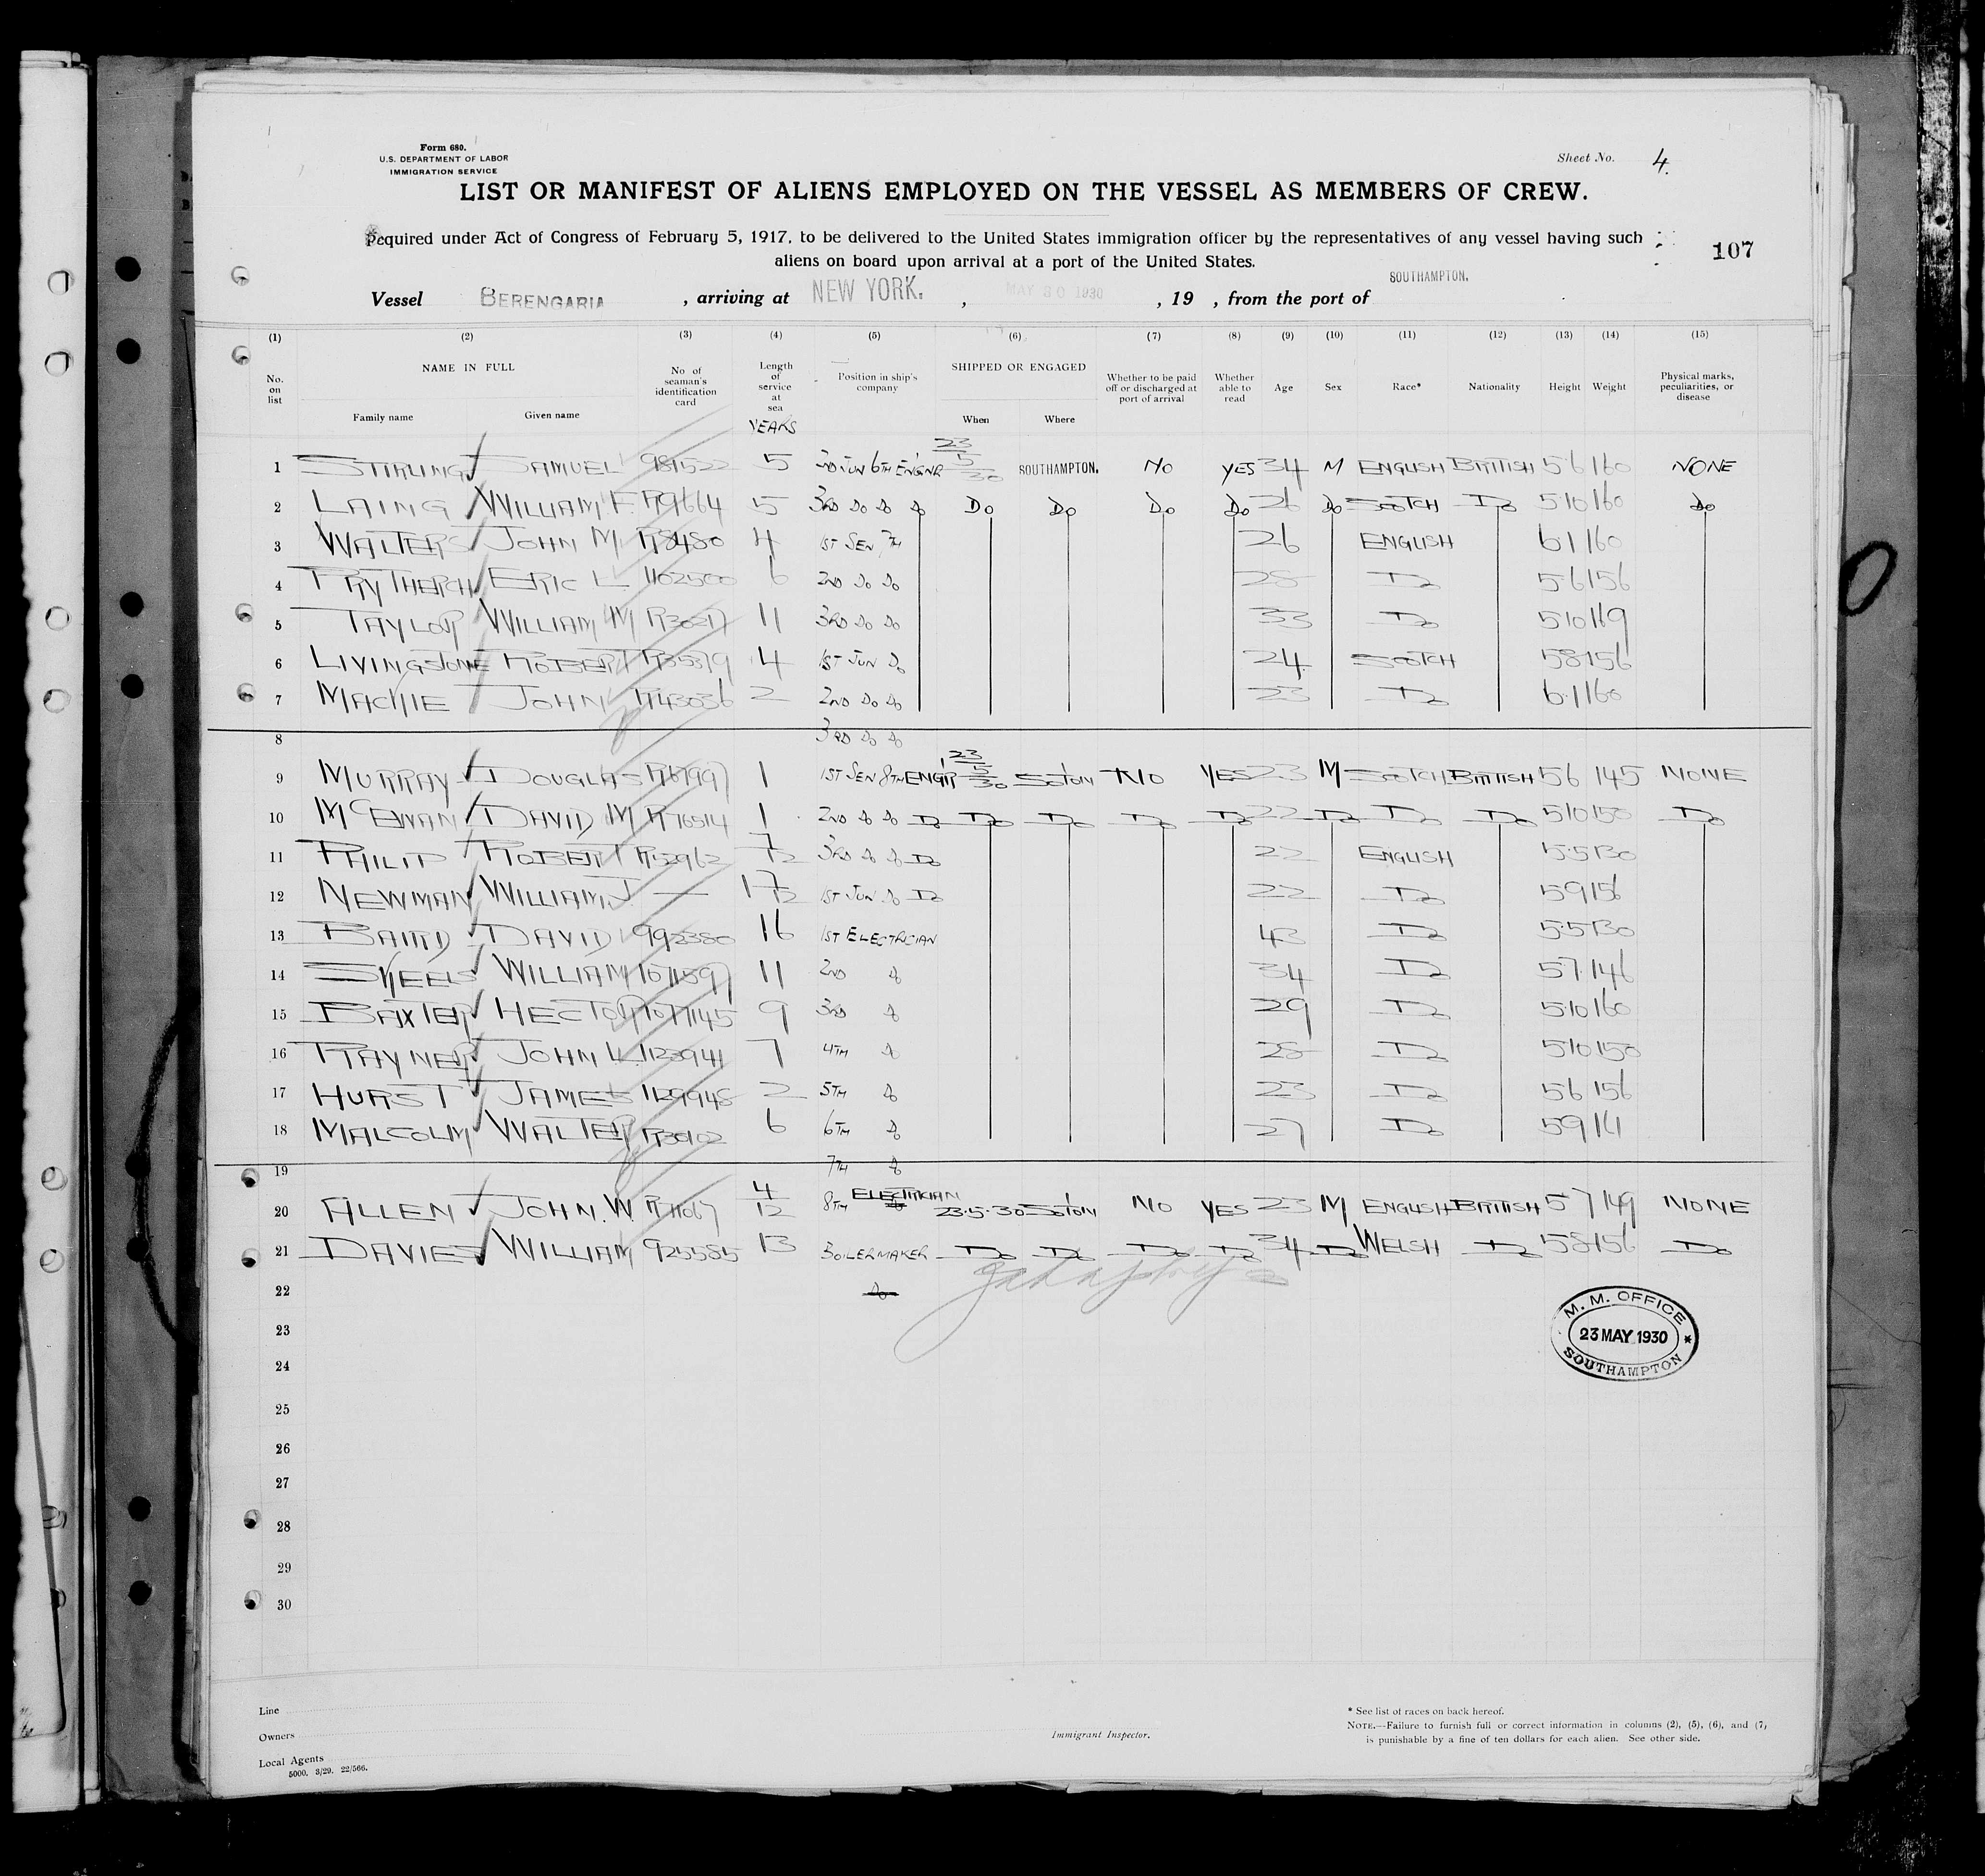 Form 680.
U.S. DEPARTMENT OF LABOR
IMMIGRATION SERVICE
Sheet No. 4.
LIST OR MANIFEST OF ALIENS EMPLOYED ON THE VESSEL AS MEMBERS OF CREW.
Required under Act of Congress of February 5, 1917, to be delivered to the United States immigration officer by the representatives of any vessel having such
aliens on board upon arrival at a port of the United States.
107
Vessel BERENGARIA, arriving at NEW YORK., MAY 30 1930, 19 , from the port of SOUTHAMPTON.
(1) (2) (3) (4) (5) (6) (7) (8) (9) (10) (11) (12) (13) (14) (15)
No. on list NAME IN FULL Family name Given name No. of seaman's identification card Length of service at sea YEARS Position in ship's company SHIPPED OR ENGAGED When Where Whether to be paid off or discharged at port of arrival Whether able to read Age Sex Race* Nationality Height Weight Physical marks, peculiarities, or disease
1 STIRLING SAMUEL 981522 5 2ND JUN 6TH ENGNR 23/5/30 SOUTHAMPTON. NO YES 34 M ENGLISH BRITISH 5·6 160 NONE
2 LAING WILLIAM F. R79664 5 3RD DO DO DO DO DO DO DO 26 DO SCOTCH DO 5·10 160 DO
3 WALTERS JOHN M R78480 4 1ST SEN 7TH 26 ENGLISH 6·1 160
4 PRYTHERCH ERIC L 1102500 6 2ND DO DO 28 DO 5·6 156
5 TAYLOR WILLIAM M R30217 11 3RD DO DO 33 DO 5·10 169
6 LIVINGSTONE ROBERT R35379 4 1ST JUN DO 24 SCOTCH 5·8 156
7 MACKIE JOHN R43036 2 2ND DO DO 23 DO 6·1 160
8 3RD DO DO
9 MURRAY DOUGLAS R67997 1 1ST SEN 8TH ENGR 23/5/30 SOTON NO YES 23 M SCOTCH BRITISH 5·6 145 NONE
10 MCEWAN DAVID M R76514 1 2ND DO DO DO DO DO DO DO 22 DO DO DO 5·10 150 DO
11 PHILIP ROBERT R52962 7/12 3RD DO DO DO 22 ENGLISH 5·5 130
12 NEWMAN WILLIAM J. — 1 7/12 1ST JUN DO DO 22 DO 5·9 156
13 BAIRD DAVID 992380 16 1ST ELECTRICIAN 43 DO 5·5 130
14 SKEELS WILLIAM 1071597 11 2ND DO 34 DO 5·7 146
15 BAXTER HECTOR 1077145 9 3RD DO 29 DO 5·10 160
16 RAYNER JOHN L. 1123941 7 4TH DO 28 DO 5·10 150
17 HURST JAMES 1129948 2 5TH DO 23 DO 5·6 156
18 MALCOLM WALTER R73902 6 6TH DO 27 DO 5·9 141
19 7TH DO
20 ALLEN JOHN. W. R71067 4/12 8TH ELECTRICIAN 23·5·30 SOTON NO YES 23 M ENGLISH BRITISH 5·7 149 NONE
21 DAVIES WILLIAM 925585 13 BOILERMAKER DO DO DO DO 34 DO WELSH DO 5·8 156 DO
22 DO
23
24
25
26
27
28
29
30
M. M. OFFICE
23 MAY 1930
SOUTHAMPTON
Line
Owners
Local Agents
5000. 3/29. 22/566.
Immigrant Inspector.
* See list of races on back hereof.
NOTE.—Failure to furnish full or correct information in columns (2), (5), (6), and (7)
is punishable by a fine of ten dollars for each alien. See other side.